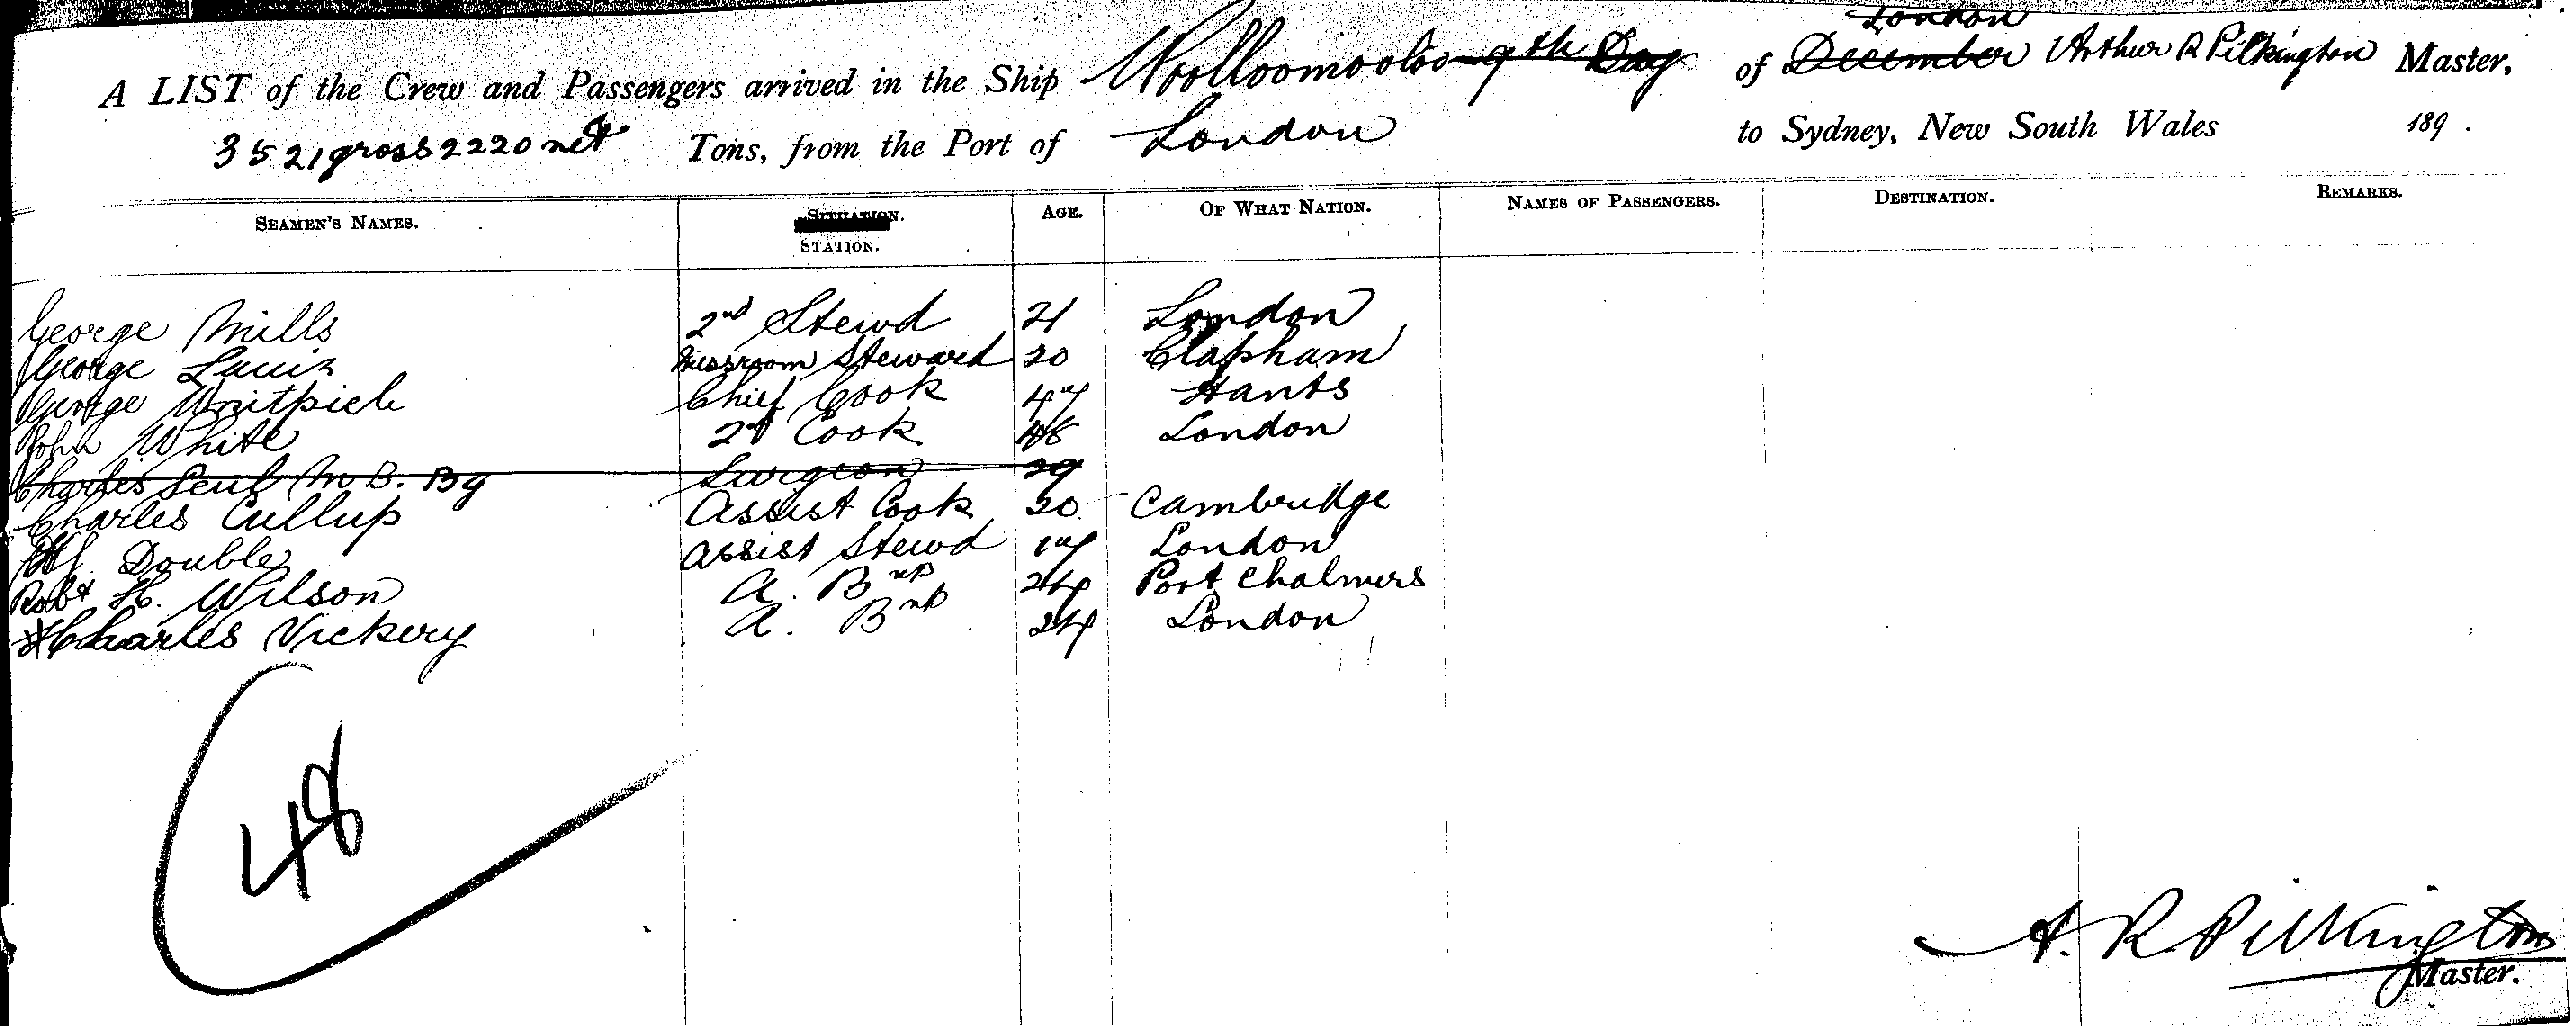 London
A LIST of the Crew and Passengers arrived in the Ship Woolloomooloo 9th Day of December Arthur R Pilkington Master,
3521 gross 2220 nett Tons, from the Port of London to Sydney, New South Wales 189 .
SEAMEN'S NAMES. SITUATION. STATION. AGE. OF WHAT NATION. NAMES OF PASSENGERS. DESTINATION. REMARKS.
George Mills 2nd Stewd 21 London
George Messroom Steward 20 Clapham
George Chief Cook 47 Hants
John White 2d Cook 48 London
Charles M B. Surgeon 29
Charles Cullup Assist Cook 20 Cambridge
Double Assist Stewd 17 London
Robt H. Wilson A. B 24 Port Chalmers
Charles Vickery A. B 24 London
48
A. R Pilkington
Master.